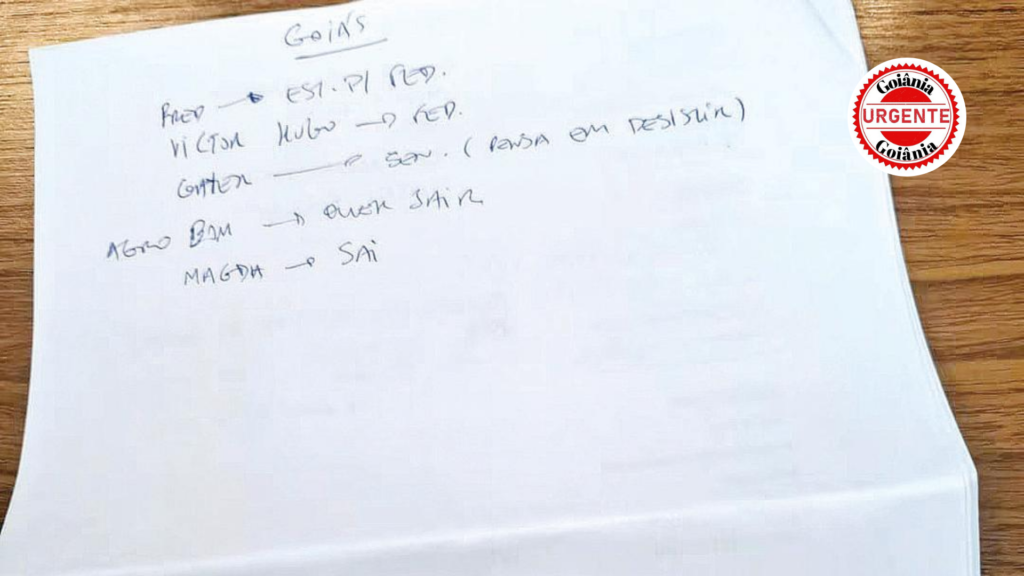 GOIÁS
FRED → EST. P/ FED.
VICTOR HUGO → FED.
GAYER → SEN. (PENSA EM DESISTIR)
AGRO → QUER SAIR
MAGDA → SAI
Goiânia
URGENTE
Goiânia